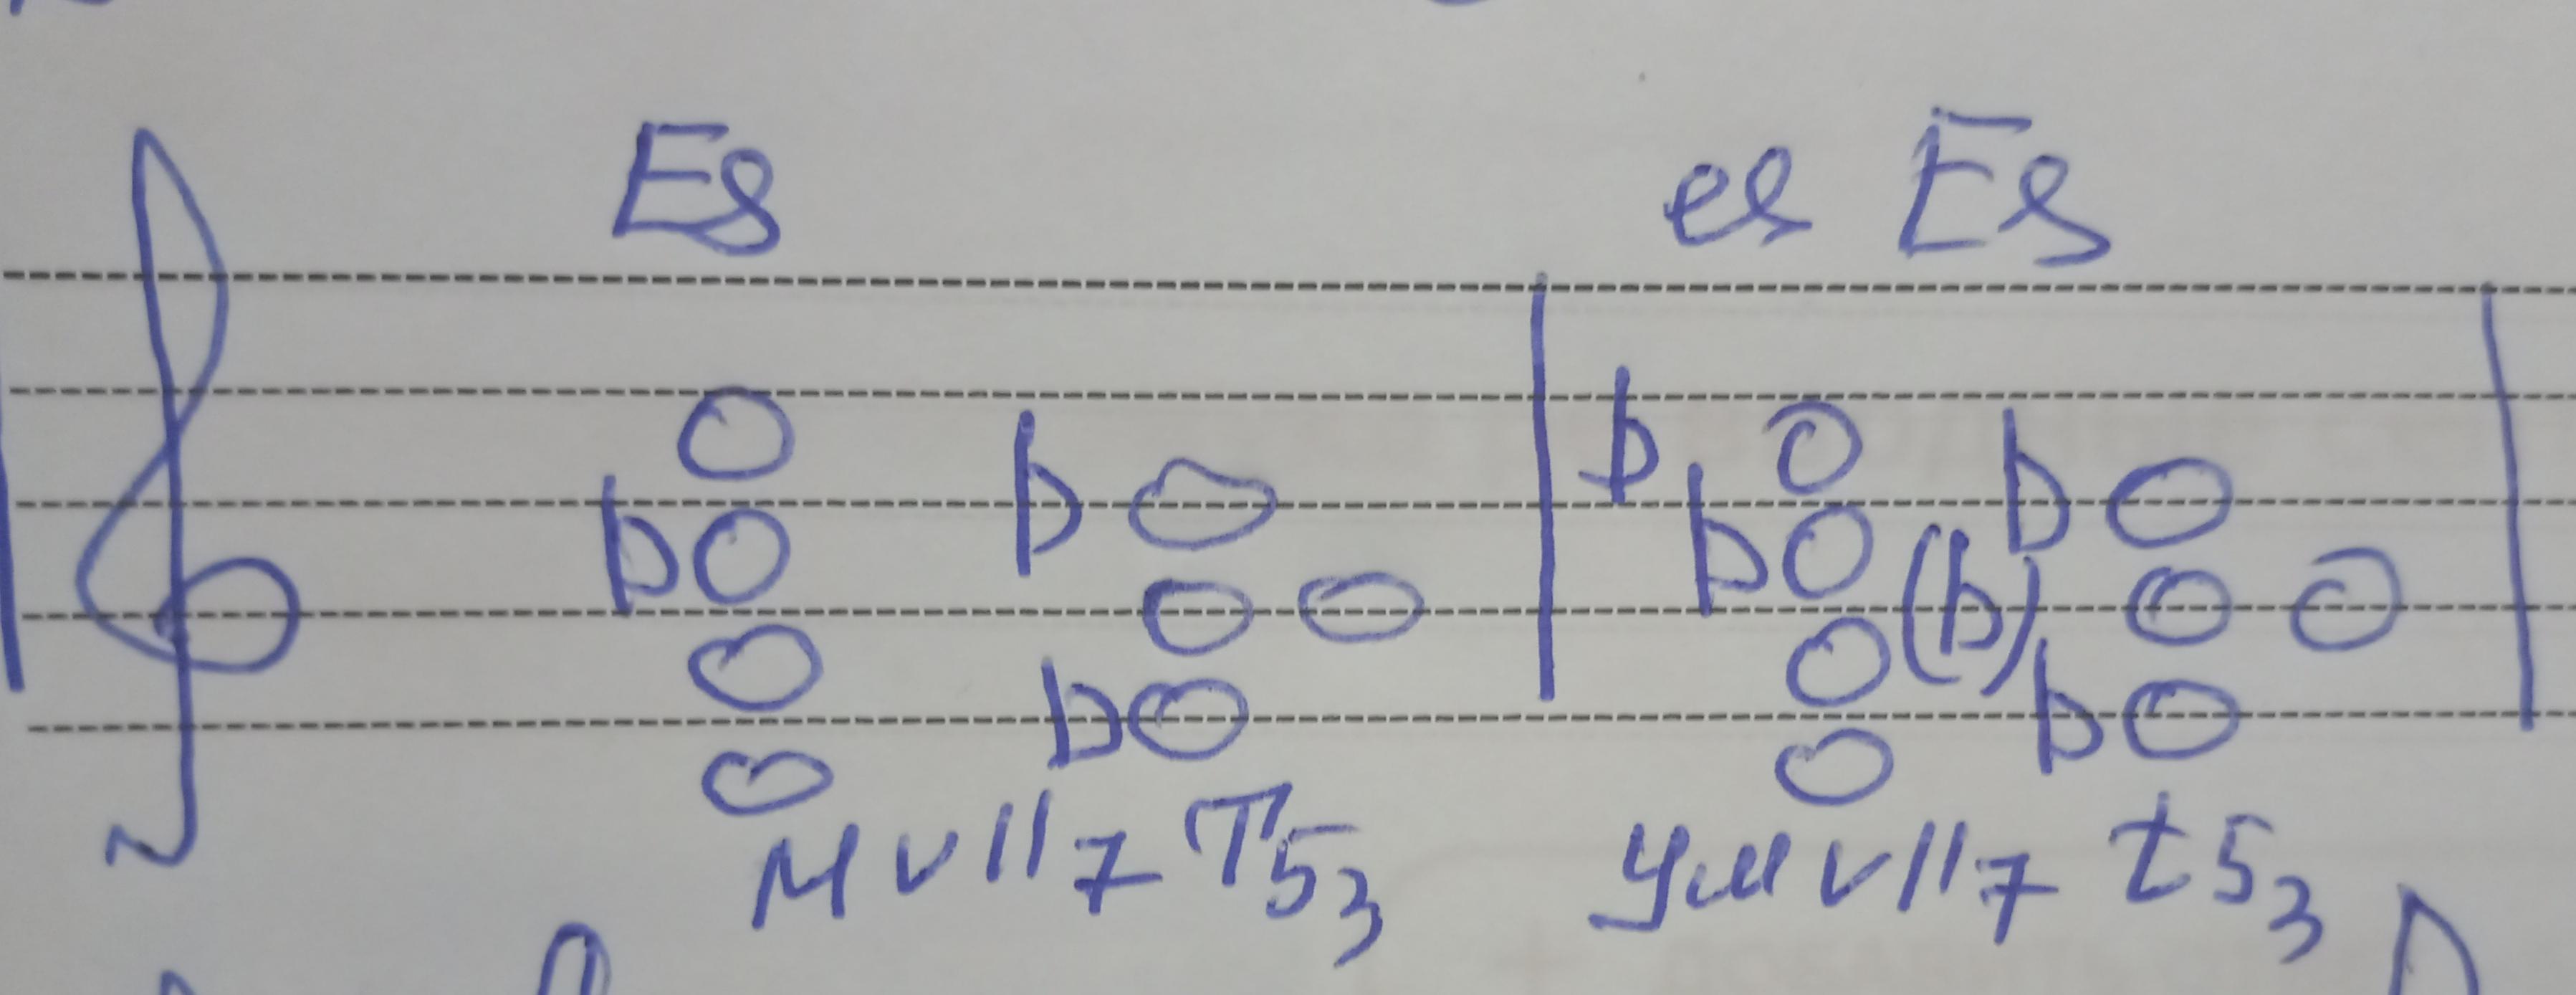 Es es Es
М VII7 T53 Ум VII7 t53